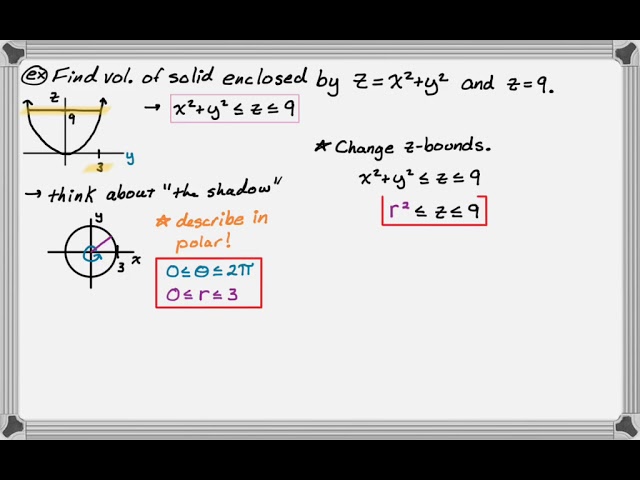 ex Find vol. of solid enclosed by z = x² + y² and z = 9.
z
9
→ x² + y² ≤ z ≤ 9
3
y
→ think about "the shadow"
y
x
3
★ describe in
polar!
0 ≤ θ ≤ 2π
0 ≤ r ≤ 3
★ Change z-bounds.
x² + y² ≤ z ≤ 9
r² ≤ z ≤ 9